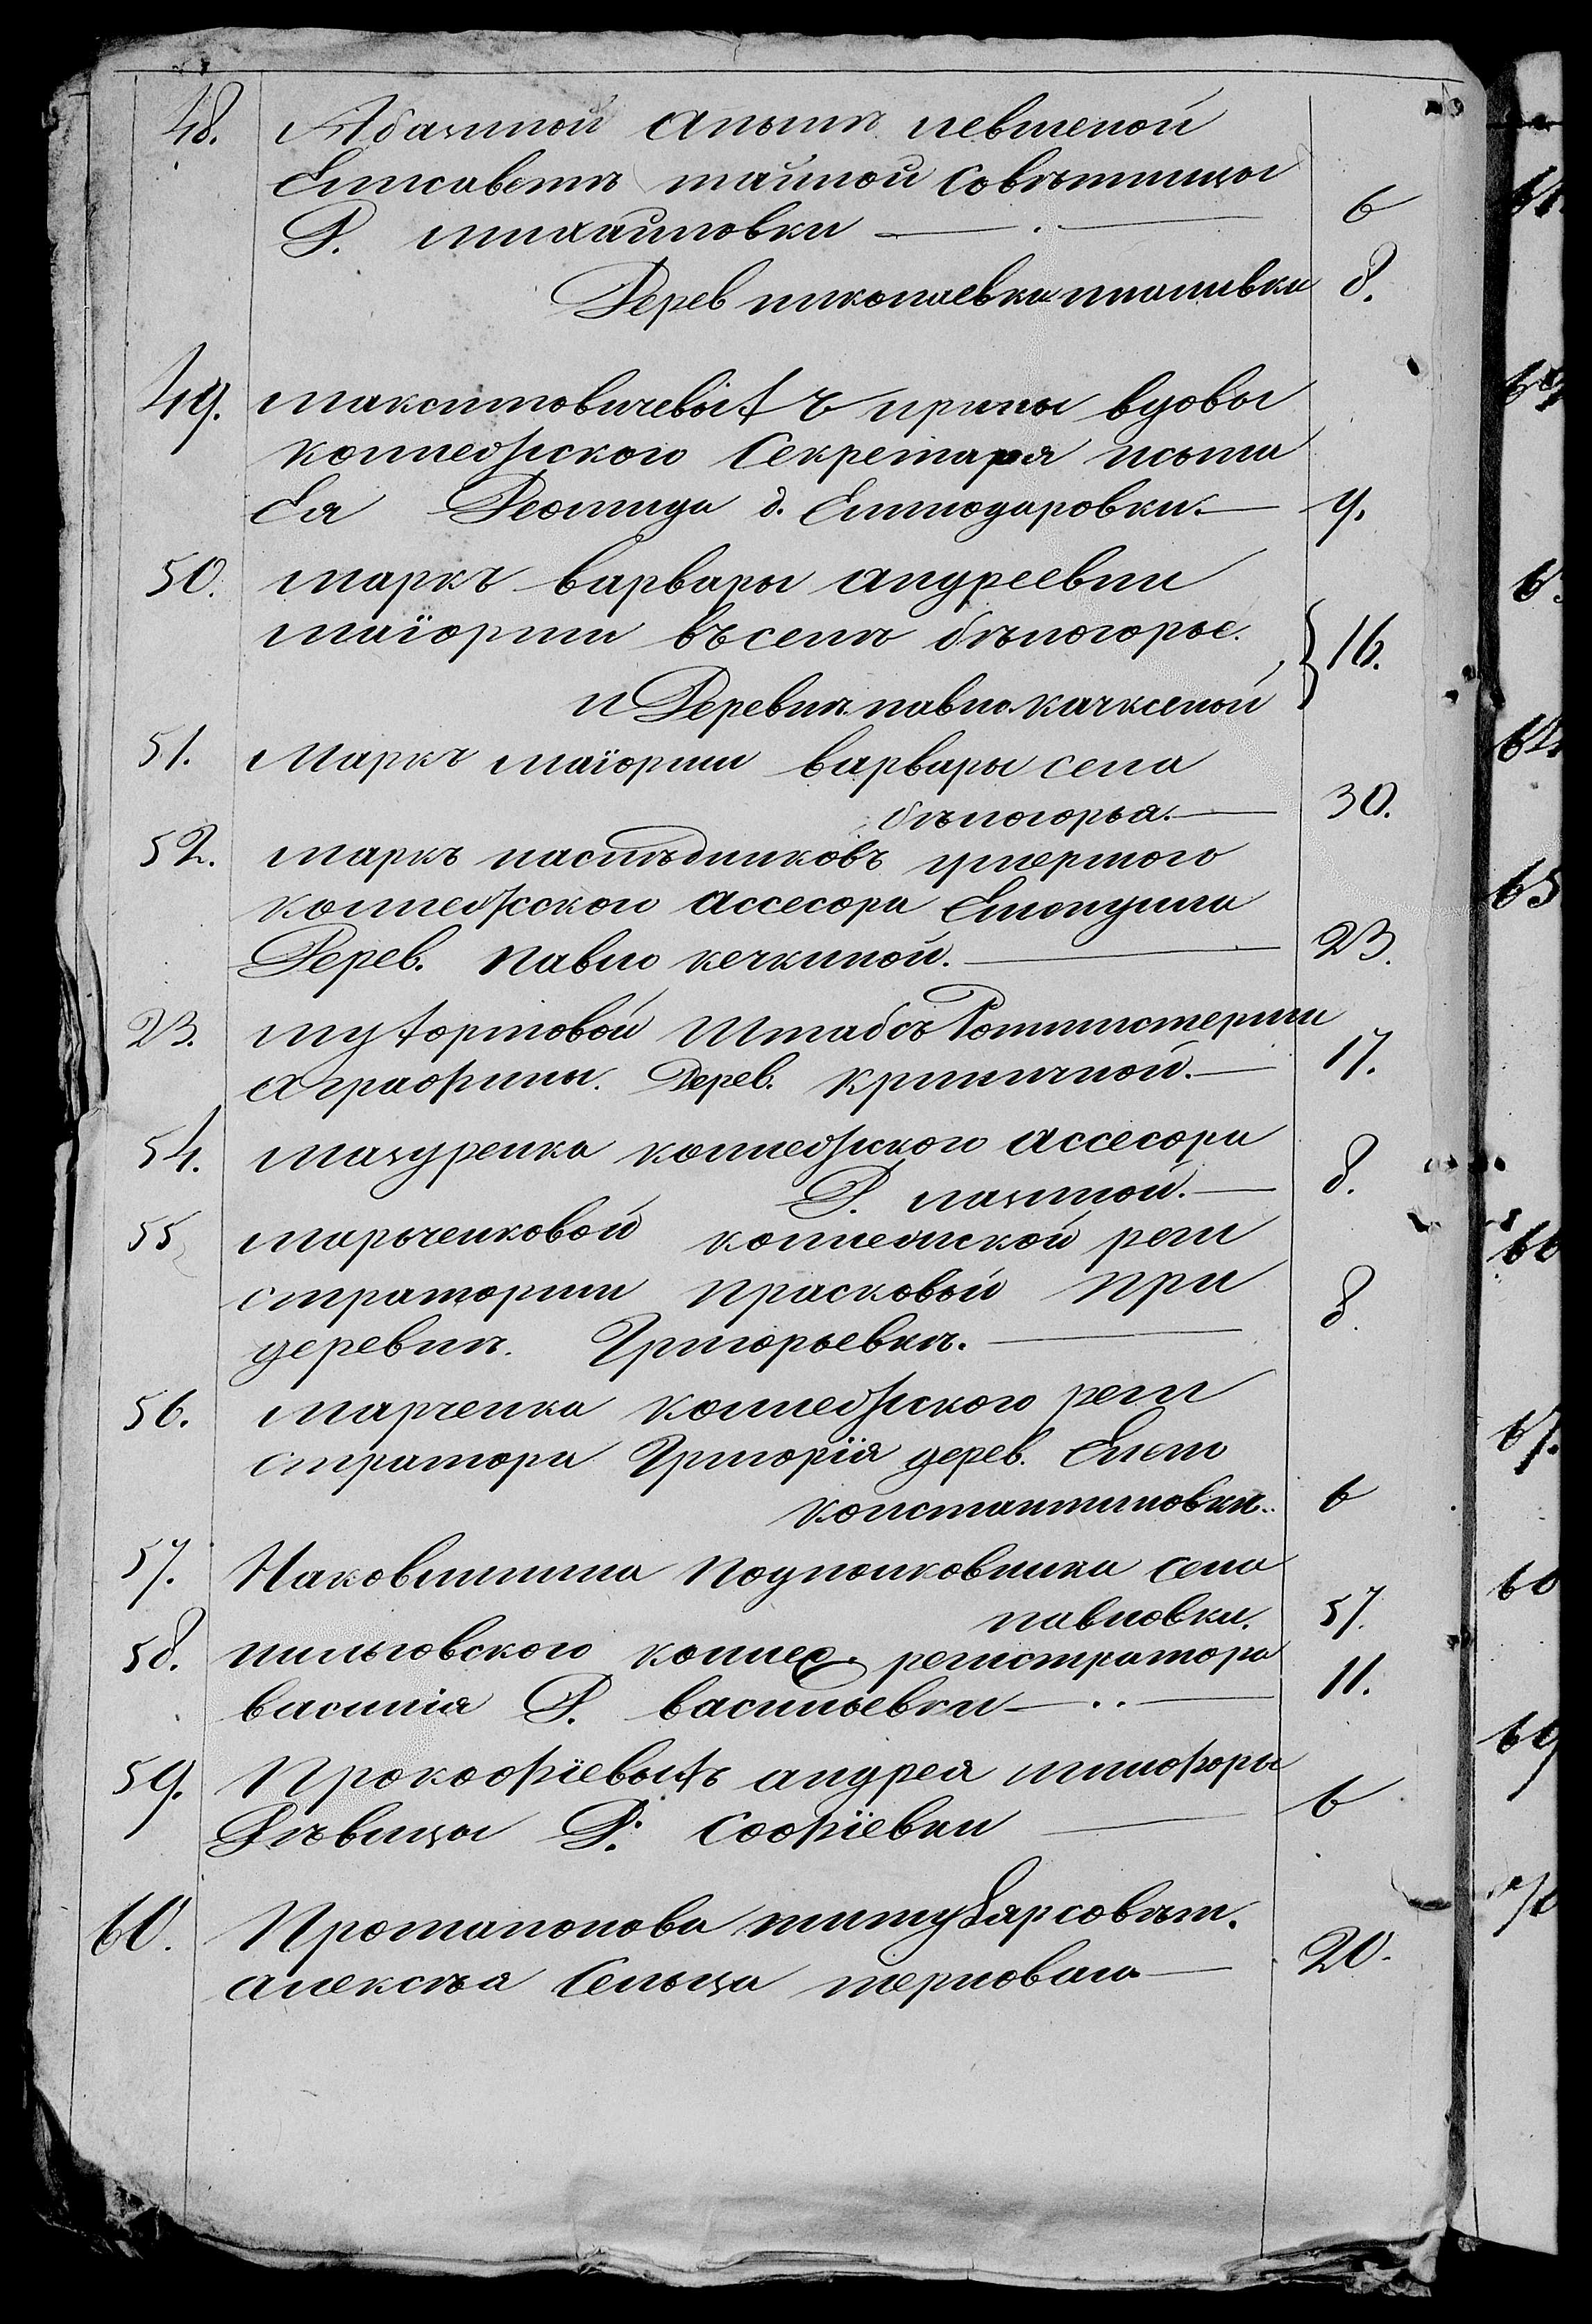 48. Абазиной Анъны невшеной
Елисаветъ тайной Совѣтницы
Д. михайловки — 6
Дерев николаевки 8.
49. максимовичевыхъ ирины вдовы
коллежского Секретаря
Ея Леонида д. Елиодаровки. — 9.
50. маркъ варвары андреевны
маіорши въ селѣ бѣлогорье. } 16.
и Деревнѣ павло качкеной
51. Маркъ маіорши варвары села
бѣлогорья. — 30.
52. маркъ наслѣдниковъ умершого
коллежского ассесора
Дерев. павло кечкиной. — 23.
23. мухортовой Штабсъ Ротмистерши
аграфины. Дерев. криничной. — 17.
54. мазуренка коллежского ассесора
Д. лазиной. — 8.
55 марченковой коллежской реги
страторши прасковьи при
деревнѣ. Григорьевкѣ. — 8.
56. марченка коллежского реги
стратора Григорія дерев. Елено
константиновки. 6
57. Наковальнина подполковника села
павловки. 57.
58. пильговского коллеж. регистратора
василия Д. васильевки — 11.
59. Прокофіевыхъ андрея нимфоры
Дѣвицы Д. Софіевки 6
60. Протапопова титулярсовѣт.
алексѣя Сельца терноваго — 20.
61.
62
63
64
65
66
67.
68
69
70